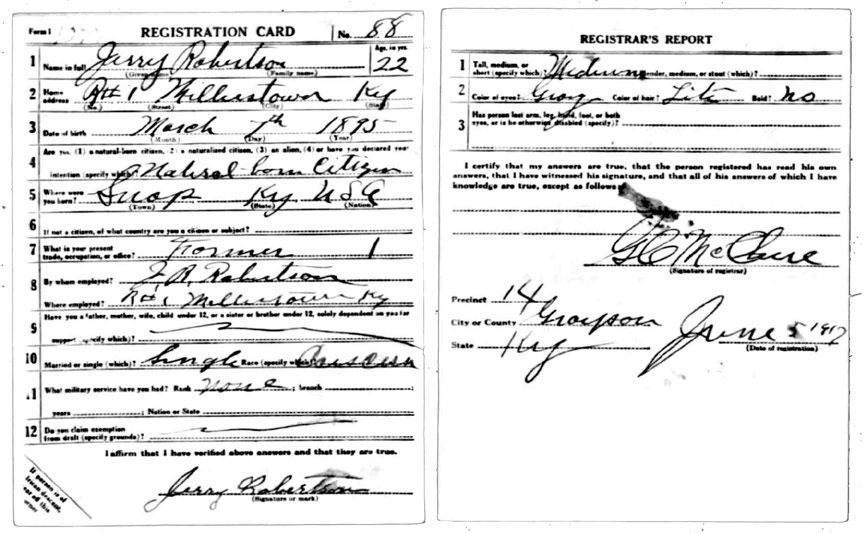 Form 1 REGISTRATION CARD No. 88
1 Name in full Jerry Robertson Age, in yrs. 22
(Given name) (Family name)
2 Home address R#1 Millerstown Ky
(No.) (Street) (City) (State)
3 Date of birth March 7th 1895
(Month) (Day) (Year)
4 Are you (1) a natural-born citizen, (2) a naturalized citizen, (3) an alien, (4) or have you declared your
intention (specify which)? Natural born Citizen
5 Where were you born? Snap Ky USA
(Town) (State) (Nation)
6 If not a citizen, of what country are you a citizen or subject?
7 What is your present trade, occupation, or office? Farmer 1
8 By whom employed? Robertson
Where employed? R#1 Millerstown Ky
9 Have you a father, mother, wife, child under 12, or a sister or brother under 12, solely dependent on you for
support (specify which)?
10 Married or single (which)? Single Race (specify which)?
11 What military service have you had? Rank None ; branch ;
years ; Nation or State
12 Do you claim exemption from draft (specify grounds)?
I affirm that I have verified above answers and that they are true.
Jerry Robertson
(Signature or mark)
If person is of
African descent,
off this
corner
REGISTRAR'S REPORT
1 Tall, medium, or short (specify which)? Medium Slender, medium, or stout (which)?
2 Color of eyes? Gray Color of hair? Lite Bald? No
3 Has person lost arm, leg, hand, foot, or both
eyes, or is he otherwise disabled (specify)?
I certify that my answers are true, that the person registered has read his own
answers, that I have witnessed his signature, and that all of his answers of which I have
knowledge are true, except as follows:
G C McClure
(Signature of registrar)
Precinct 14
City or County Grayson
State Ky
June 5 1917
(Date of registration)